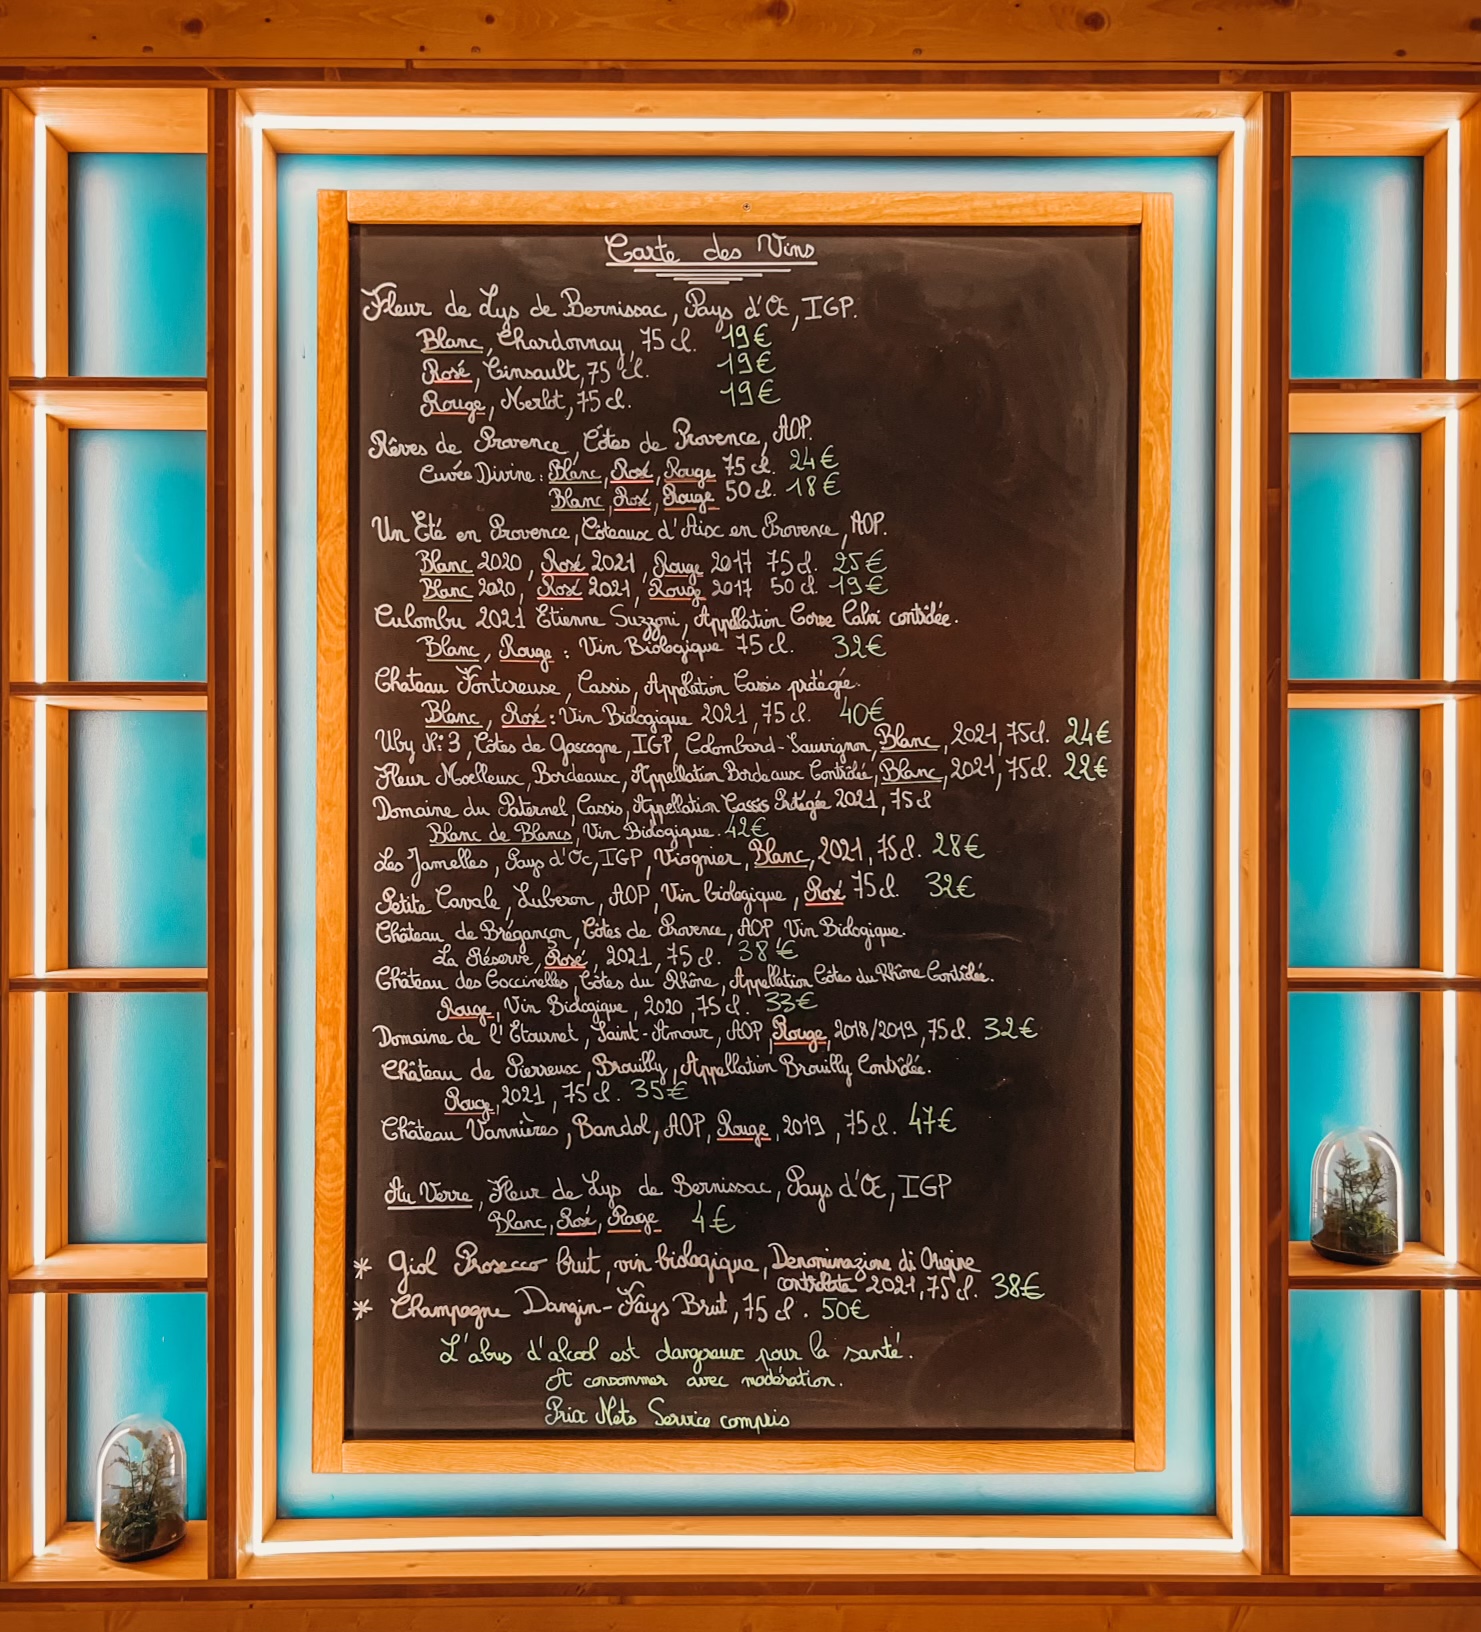 Carte des Vins
Fleur de Lys de Bernissac, Pays d'Oc, IGP.
Blanc, Chardonnay, 75 cl. 19€
Rosé, Cinsault, 75 cl. 19€
Rouge, Merlot, 75 cl. 19€
Rêves de Provence, Côtes de Provence, AOP.
Cuvée Divine : Blanc, Rosé, Rouge 75 cl. 24€
Blanc, Rosé, Rouge 50 cl. 18€
Un Eté en Provence, Côteaux d'Aix en Provence, AOP.
Blanc 2020, Rosé 2021, Rouge 2017 75 cl. 25€
Blanc 2020, Rosé 2021, Rouge 2017 50 cl. 19€
Culombu 2021 Etienne Suzzoni, Appellation Corse Calvi contrôlée.
Blanc, Rouge : Vin Biologique 75 cl. 32€
Chateau Fontcreuse, Cassis, Appelation Cassis protégée.
Blanc, Rosé : Vin Biologique 2021, 75 cl. 40€
Uby N:3, Côtes de Gascogne, IGP, Colombard-Sauvignon, Blanc, 2021, 75cl. 24€
Fleur Moelleux, Bordeaux, Appellation Bordeaux Contrôlée, Blanc, 2021, 75cl. 22€
Domaine du Paternel, Cassis, Appellation Cassis Protégée 2021, 75cl
Blanc de Blancs, Vin Biologique. 42€
Les Jamelles, Pays d'Oc, IGP, Viognier, Blanc, 2021, 75cl. 28€
Petite Cavale, Luberon, AOP, Vin biologique, Rosé 75cl. 32€
Château de Brégançon, Côtes de Provence, AOP, Vin Biologique.
La Réserve, Rosé, 2021, 75 cl. 38€
Château des Coccinelles, Côtes du Rhône, Appellation Côtes du Rhône Contrôlée.
Rouge, Vin Biologique, 2020, 75 cl. 33€
Domaine de l'Etournet, Saint-Amour, AOP, Rouge, 2018/2019, 75cl. 32€
Château de Pierreux, Brouilly, Appellation Brouilly Contrôlée.
Rouge, 2021, 75 cl. 35€
Château Vannières, Bandol, AOP, Rouge, 2019, 75cl. 47€
Au Verre, Fleur de Lys de Bernissac, Pays d'Oc, IGP
Blanc, Rosé, Rouge 4€
* Giol Prosecco brut, vin biologique, Denominazione di Origine
controlata 2021, 75 cl. 38€
* Champagne Dangin-Fays Brut, 75 cl. 50€
L'abus d'alcool est dangereux pour la santé.
A consommer avec modération.
Prix Nets Service compris